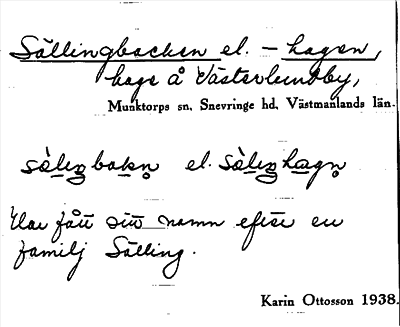 Sällingbacken el. – hagen,
hage å Västerlundby,
Munktorps sn, Snevringe hd, Västmanlands län.
sä̀lιŋbakn̥ el. sä̀lιŋhagn̥
Har fått sitt namn efter en
familj Sälling.
Karin Ottosson 1938.